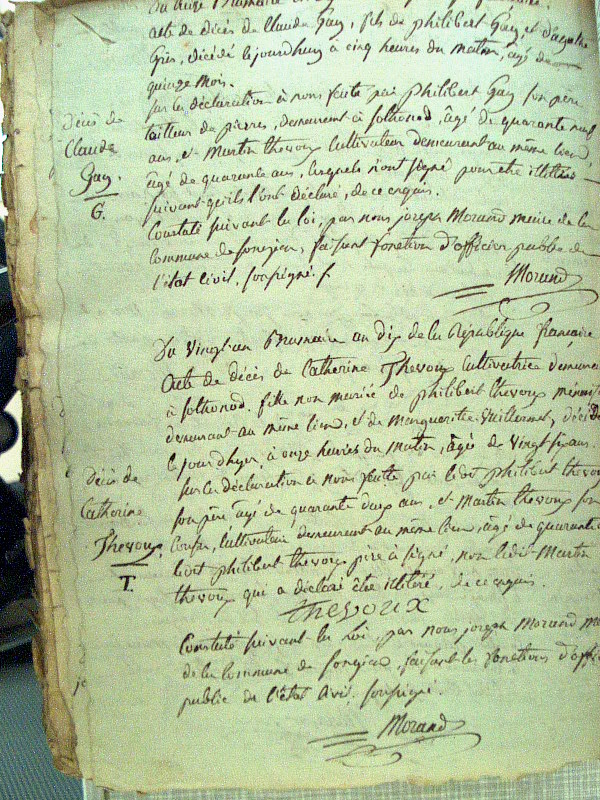 acte de décès de Claude Gay, fils de philibert Gay, et d'agathe
Gris, décédé le jourdhuy à cinq heures du matin, âgé de
quinze mois.
Décès de
Claude
Gay.
G.
sur la déclaration à nous faite par philibert Gay son pere
tailleur de pierres, demeurant à solhonod, âgé de quarante neuf
ans, et Martin thevoux Cultivateur demeurant au même lieu,
âgé de quarante ans, lesquels n'ont signé pour être illitérés
suivant qu'ils l'ont déclaré, de ce enquis.
Constaté suivant la loi, par nous joseph Morand maire de la
Commune de songieu, faisant fonction d'officier public de
l'état civil, soussigné.
Morand
Du vingt un Brumaire an dix de la République française
Acte de décès de Catherine Thevoux Cultivatrice demeurant
à solhonod, fille non mariée de philibert thevoux
demeurant au même lieu, et de Marguerite Vuillermet, décédée
le jourdhuy, à onze heures du matin, âgée de vingt six ans.
Décès de
Catherine
Thevoux
T.
sur la déclaration à nous faite par ledit philibert thevoux
son père, âgé de quarante deux ans, et Martin thevoux son
Cousin, Cultivateur demeurant au même lieu, âgé de quarante
ledit philibert thevoux père à signé, non ledit Martin
thevoux qui a déclaré être illitéré, de ce enquis.
Thevoux
Constaté suivant la Loi, par nous joseph Morand
de la Commune de songieu, faisant les fonctions d'officier
public de l'état Civil, soussigné.
Morand